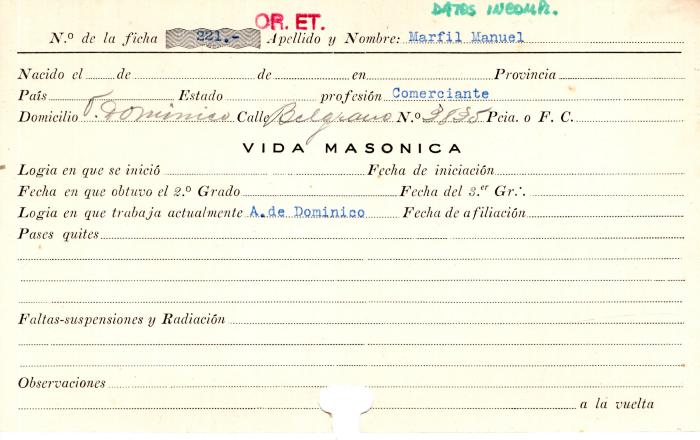 DATOS INCOMPL.
OR. ET.
N.º de la ficha 221.- Apellido y Nombre: Marfil Manuel
Nacido el de de en Provincia
País Estado profesión Comerciante
Domicilio Dominico Calle Belgrano N.º 3835 Pcia. o F. C.
VIDA MASONICA
Logia en que se inició Fecha de iniciación
Fecha en que obtuvo el 2.º Grado Fecha del 3.er Gr∴
Logia en que trabaja actualmente A.de Dominico Fecha de afiliación
Pases quites
Faltas-suspensiones y Radiación
Observaciones
a la vuelta